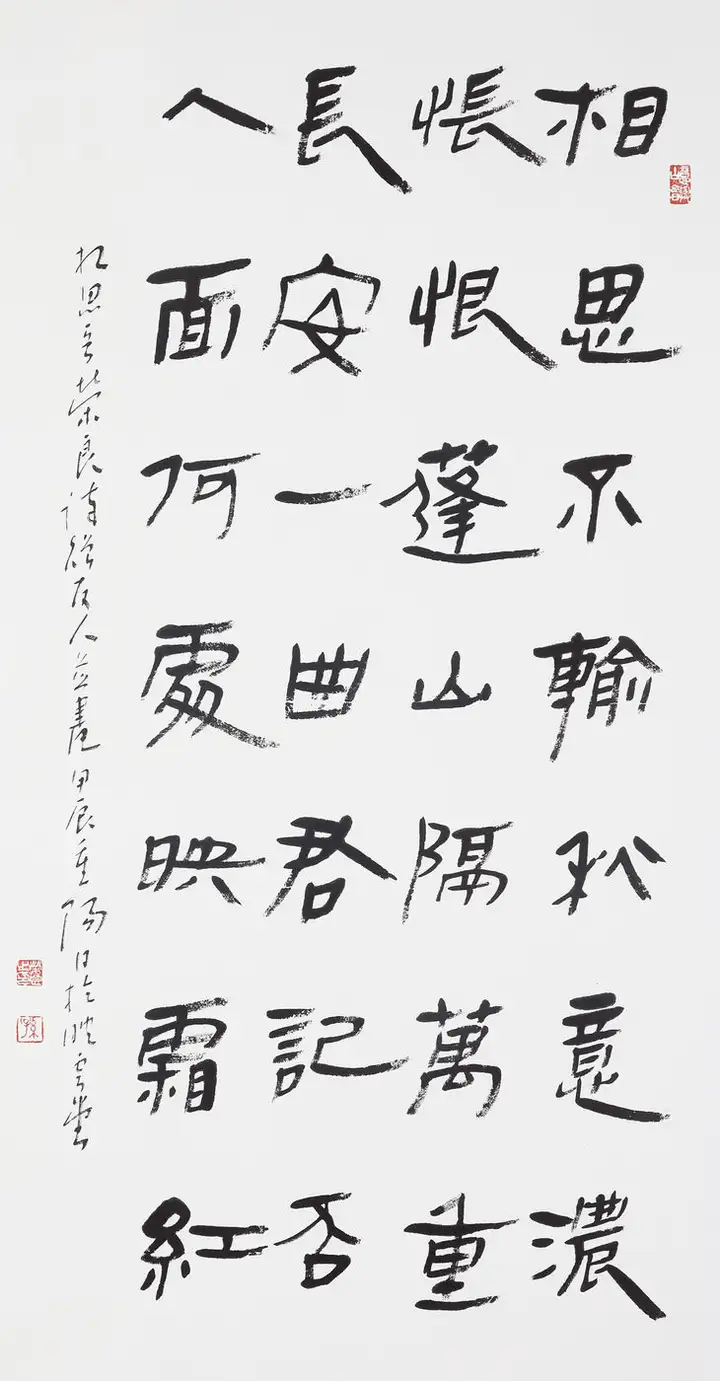 相思不輸秋意濃
悵恨蓬山隔萬重
長安一曲君記否
人面何處映霜紅
榮良詩友人並書甲辰重陽日於映雲堂